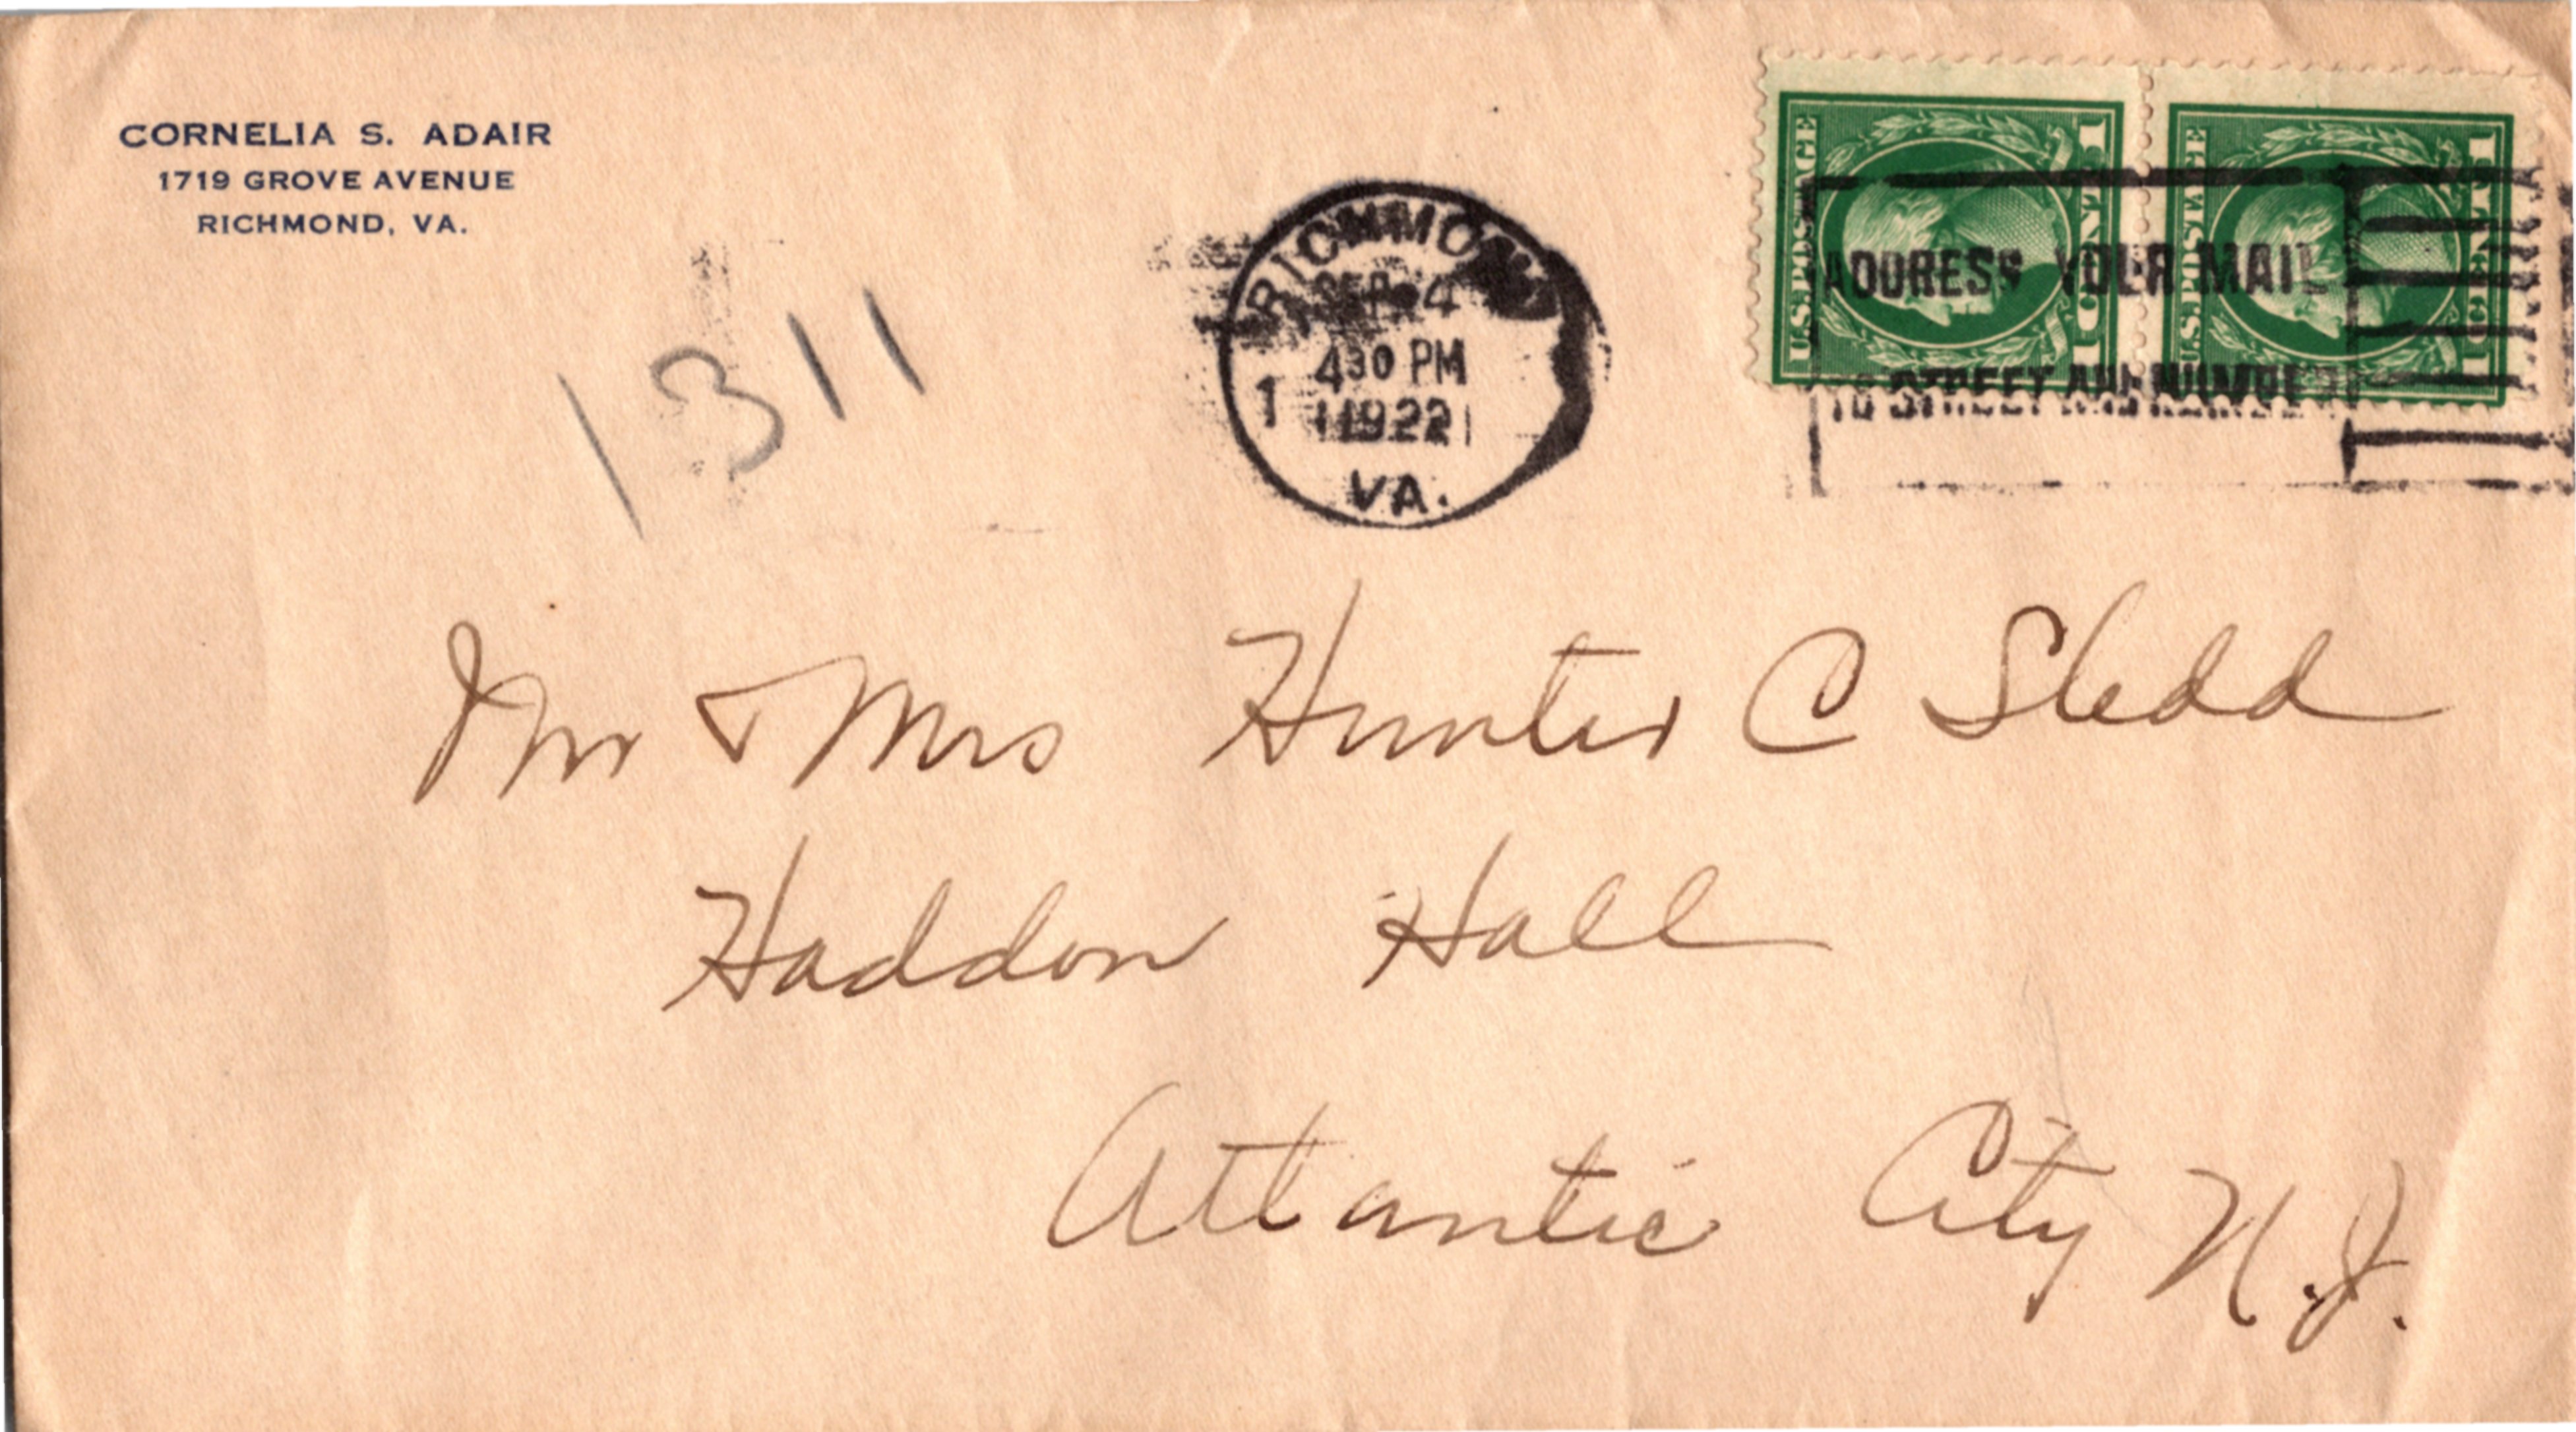 CORNELIA S. ADAIR
1719 GROVE AVENUE
RICHMOND, VA.
1311
RICHMOND
SEP 4
430 PM
1 1922
VA.
U.S. POSTAGE 1 CENT 1
U.S. POSTAGE 1 CENT 1
ADDRESS YOUR MAIL
TO STREET AND NUMBER
Mr & Mrs Hunter C Sledd
Haddon Hall
Atlantic City N.J.